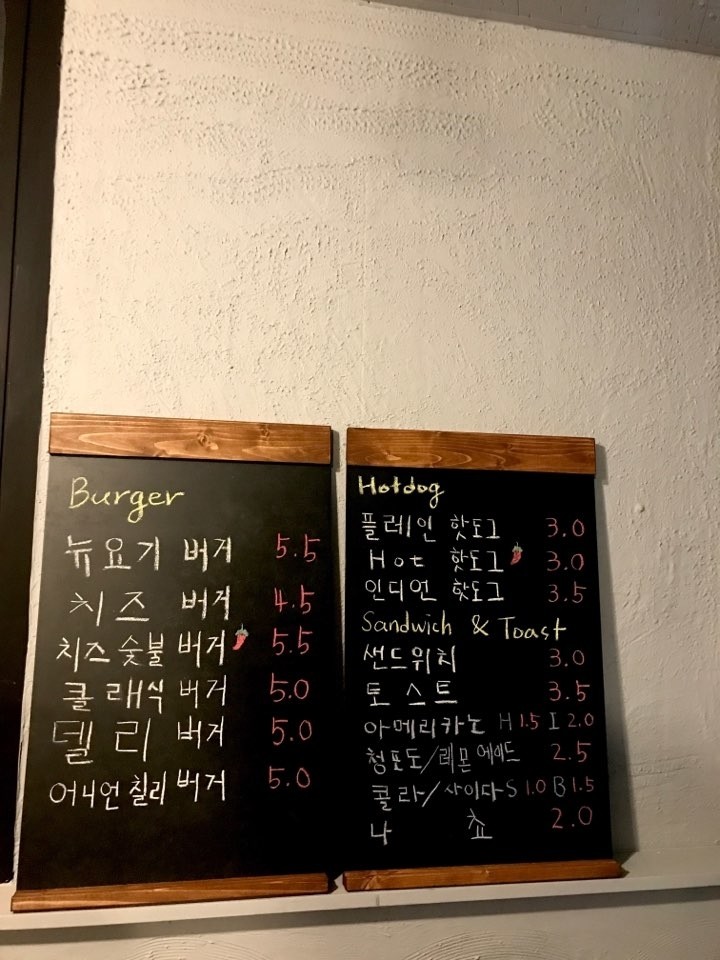 Burger
뉴요기 버거 5.5
치즈 버거 4.5
치즈 숯불 버거 5.5
클래식 버거 5.0
델리 버거 5.0
어니언 칠리 버거 5.0
Hotdog
플레인 핫도그 3.0
Hot 핫도그 3.0
인디언 핫도그 3.5
Sandwich & Toast
샌드위치 3.0
토스트 3.5
아메리카노 H 1.5 I 2.0
청포도/레몬 에이드 2.5
콜라/사이다 S 1.0 B 1.5
나쵸 2.0